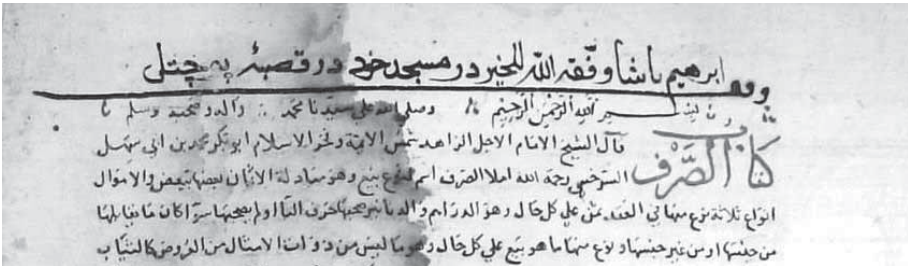 وقف ابرهيم پاشا وفقه الله للخير در مسجد خود در قصبهٔ
بسم الله الرحمن الرحيم وصلى الله على سيدنا محمد واله وصحبه وسلم
كتاب الصرف قال الشيخ الامام الاجل الزاهد شمس الائمة وفخر الاسلام ابو بكر محمد بن ابي سهل
السرخسي رحمة الله املا الصرف اسم لنوع بيع وهو مبادلة الاثمان بعضها ببعض والاموال
انواع ثلاثة نوع منها في العقد ثمن على كل حال وهو الدراهم والدنانير صحبها حرف الباء او لم يصحبها سوآ كان ما يقابلها
من جنسها او من غير جنسها ونوع منها ما هو بيع على كل حال وهو ما ليس من ذوات الامثال من العروض كالثياب